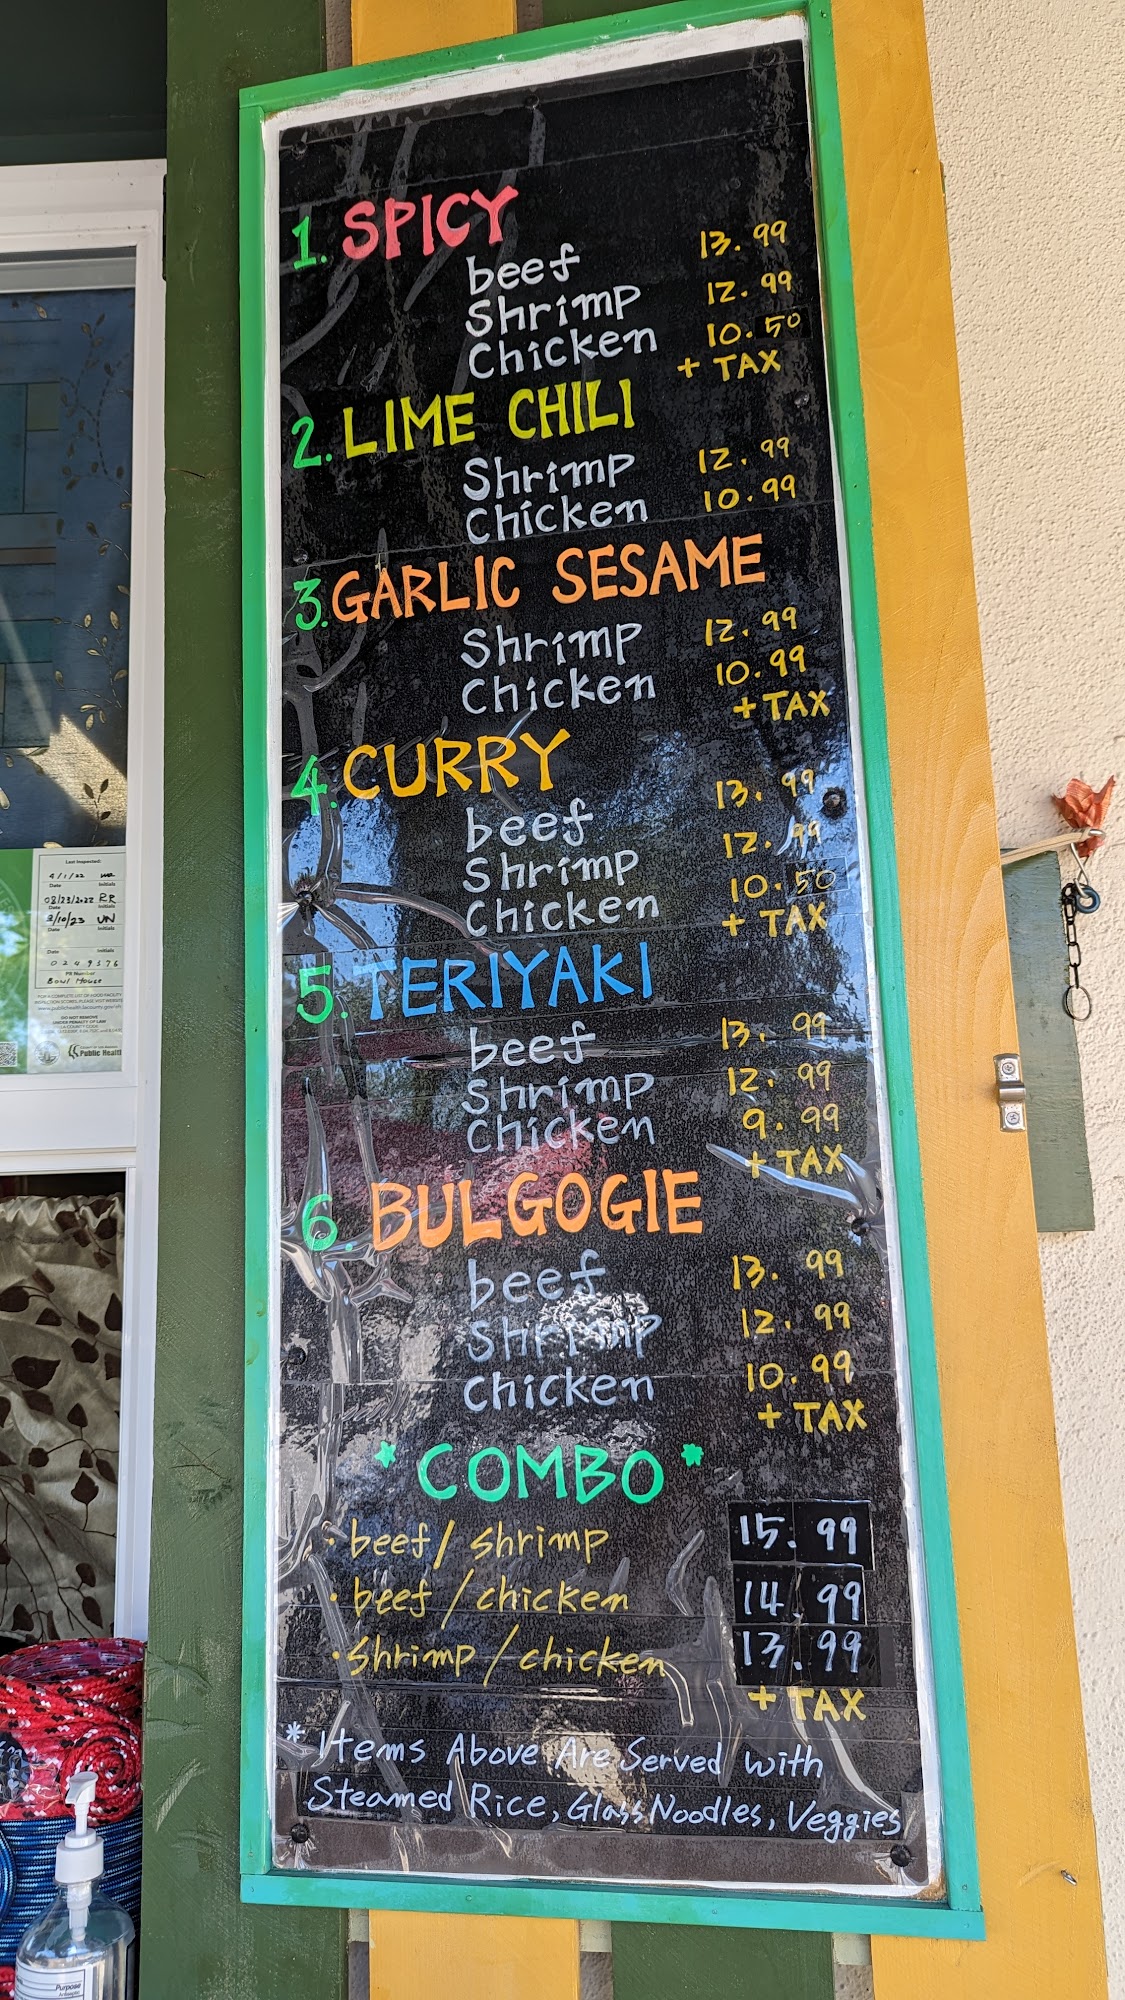 1. SPICY
beef 13.99
Shrimp 12.99
Chicken 10.50
+ TAX
2. LIME CHILI
Shrimp 12.99
Chicken 10.99
3. GARLIC SESAME
Shrimp 12.99
Chicken 10.99
+ TAX
4. CURRY
beef 13.99
Shrimp 12.99
Chicken 10.50
+ TAX
5. TERIYAKI
beef 13.99
Shrimp 12.99
Chicken 9.99
+ TAX
6. BULGOGIE
beef 13.99
Shrimp 12.99
Chicken 10.99
+ TAX
* COMBO *
· beef / shrimp 15.99
· beef / chicken 14.99
· shrimp / chicken 13.99
+ TAX
* Items Above Are Served with
Steamed Rice, Glass Noodles, Veggies
Last Inspected:
4/1/22
Date Initials
08/23/2022 RR
Date Initials
3/10/23 UN
Date Initials
PR Number
Bowl House
DO NOT REMOVE
UNDER PENALTY OF LAW
Public Health
Purpose